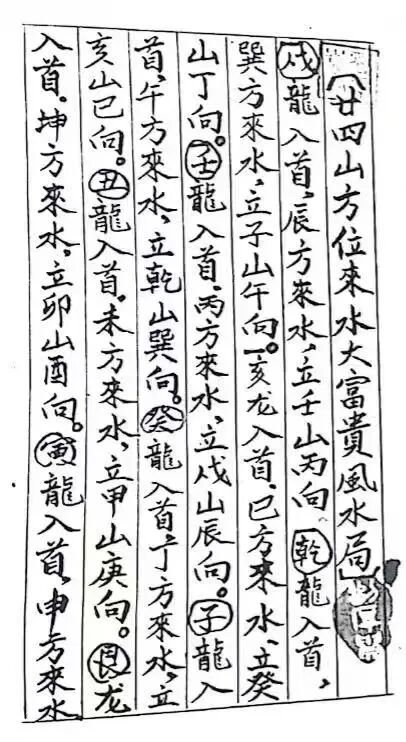 【廿四山方位來水大富貴風水局】
戌龍入首,辰方來水,立壬山丙向。乾龍入首,
巽方來水,立子山午向。亥龙入首,巳方來水,立癸
山丁向。壬龍入首,丙方來水,立戌山辰向。子龍入
首,午方來水,立乾山巽向。癸龍入首,丁方來水,立
亥山巳向。丑龍入首,未方來水,立甲山庚向。艮龙
入首,坤方來水,立卯山酉向。寅龍入首,申方來水